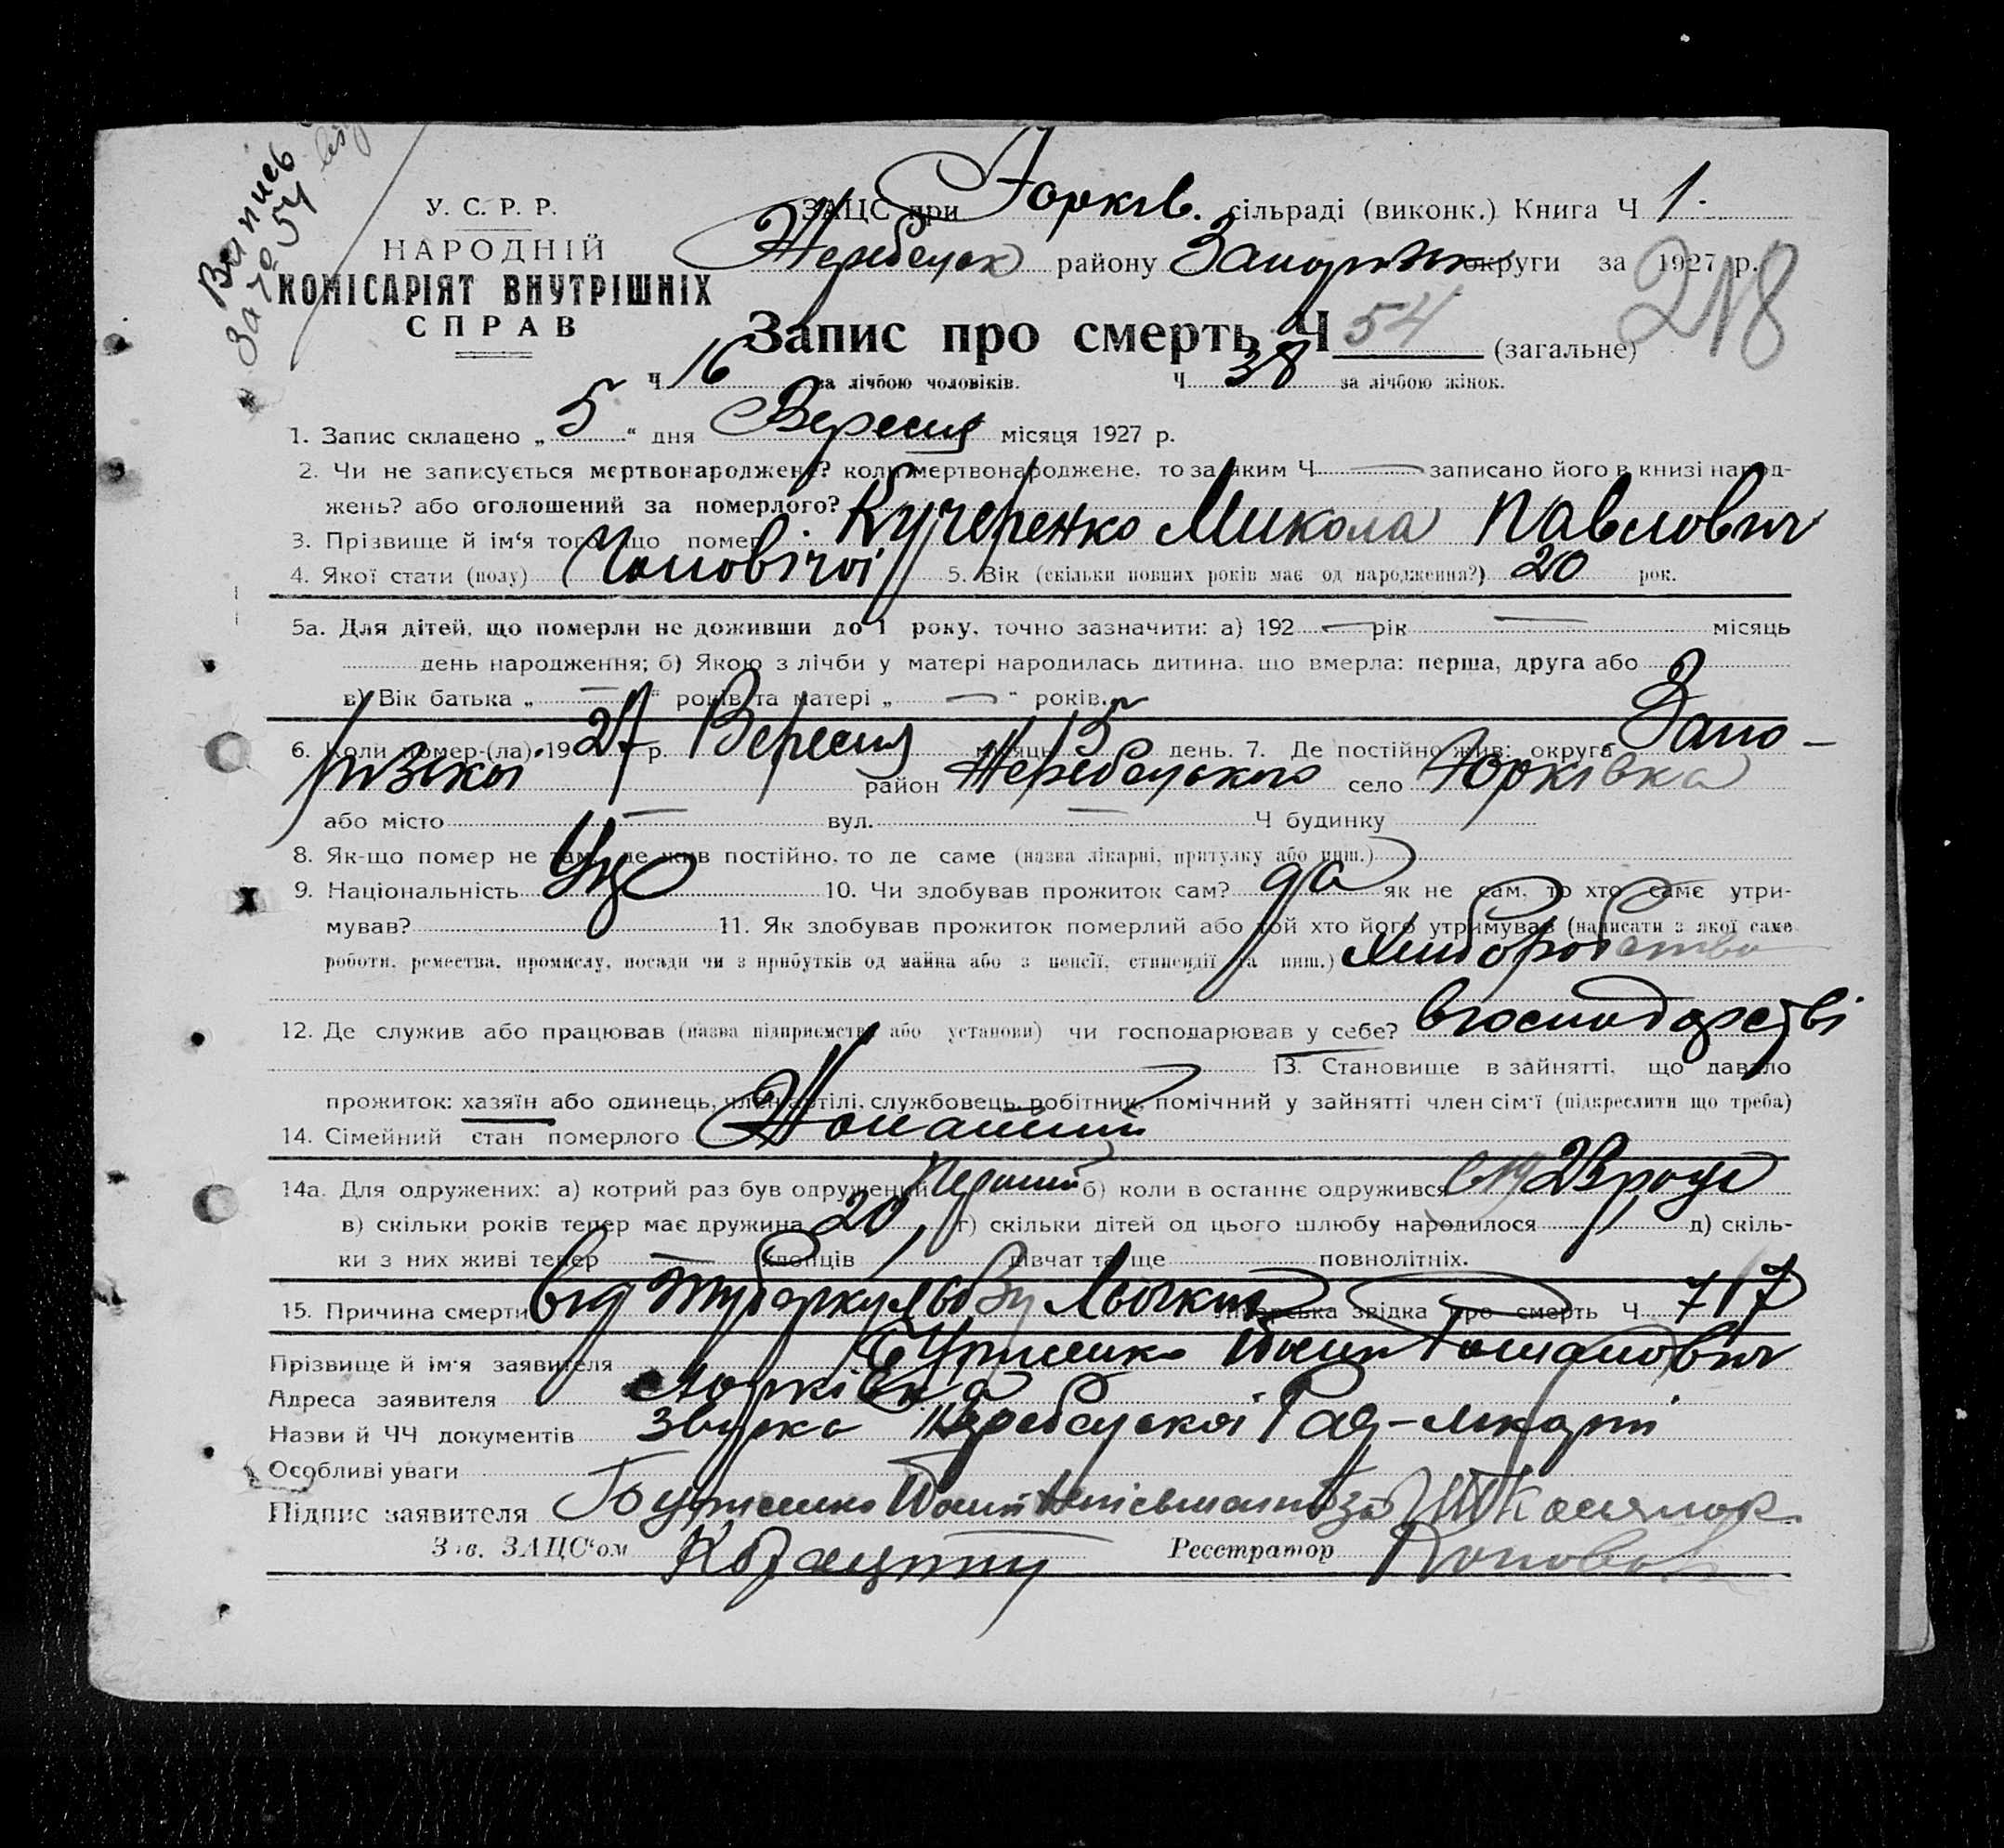 Випись
За № 54
У. С. Р. Р.
НАРОДНІЙ
КОМІСАРІЯТ ВНУТРІШНІХ
СПРАВ
ЗАЦС при Юрків. сільраді (виконк.) Книга Ч 1.
Жеребецьк району Запоріж округи за 1927 р.
218
Запис про смерть Ч 54 (загальне)
Ч 16 за лічбою чоловіків. Ч 38 за лічбою жінок.
1. Запис складено „ 5 “ дня Вересня місяця 1927 р.
2. Чи не записується мертвонароджене? коли мертвонароджене, то за яким Ч — записано його в книзі народ-
жень? або оголошений за померлого?
3. Прізвище й ім'я того, що помер Кучеренко Микола Павлович
4. Якої стати (полу) Чоловічої 5. Вік (скільки повних років має од народження?) 20 рок.
5а. Для дітей, що померли не доживши до 1 року, точно зазначити: а) 192 — рік — місяць
день народження; б) Якою з лічби у матері народилась дитина, що вмерла: перша, друга або
в) Вік батька „ — “ років та матері „ — “ років.
6. Коли помер-(ла) 1927 р. Вересня місяць 5 день. 7. Де постійно жив: округа Запо-
різької район Жеребецького село Юрківка
або місто — вул. — Ч будинку
8. Як-що помер не там, де жив постійно, то де саме (назва лікарні, притулку або инш.)
9. Національність Укр 10. Чи здобував прожиток сам? да як не сам, то хто саме утри-
мував? 11. Як здобував прожиток померлий або той хто його утримував (написати з якої саме
роботи, ремества, промислу, посади чи з прибутків од майна або з пенсії, стипендії та инш.) Хлиборобство
12. Де служив або працював (назва підприємства або установи) чи господарював у себе? в господарстві
13. Становище в зайнятті, що давало
прожиток: хазяїн або одинець, член артілі, службовець, робітник, помічний у зайнятті член сім'ї (підкреслити що треба)
14. Сімейний стан померлого Жонатий
14а. Для одружених: а) котрий раз був одружений Перший б) коли в останнє одружився в 1923 році
в) скільки років тепер має дружина 20 г) скільки дітей од цього шлюбу народилося 1 д) скіль-
ки з них живі тепер — хлопців 1 дівчат та ще повнолітніх.
15. Причина смерти від туберкульозу Льогких Лікарська звідка про смерть Ч 717
Прізвище й ім'я заявителя
Адреса заявителя Юрківка
Назви й ЧЧ документів Жеребецької
Особливі уваги
Підпис заявителя
Зав. ЗАЦС'ом
Реєстратор